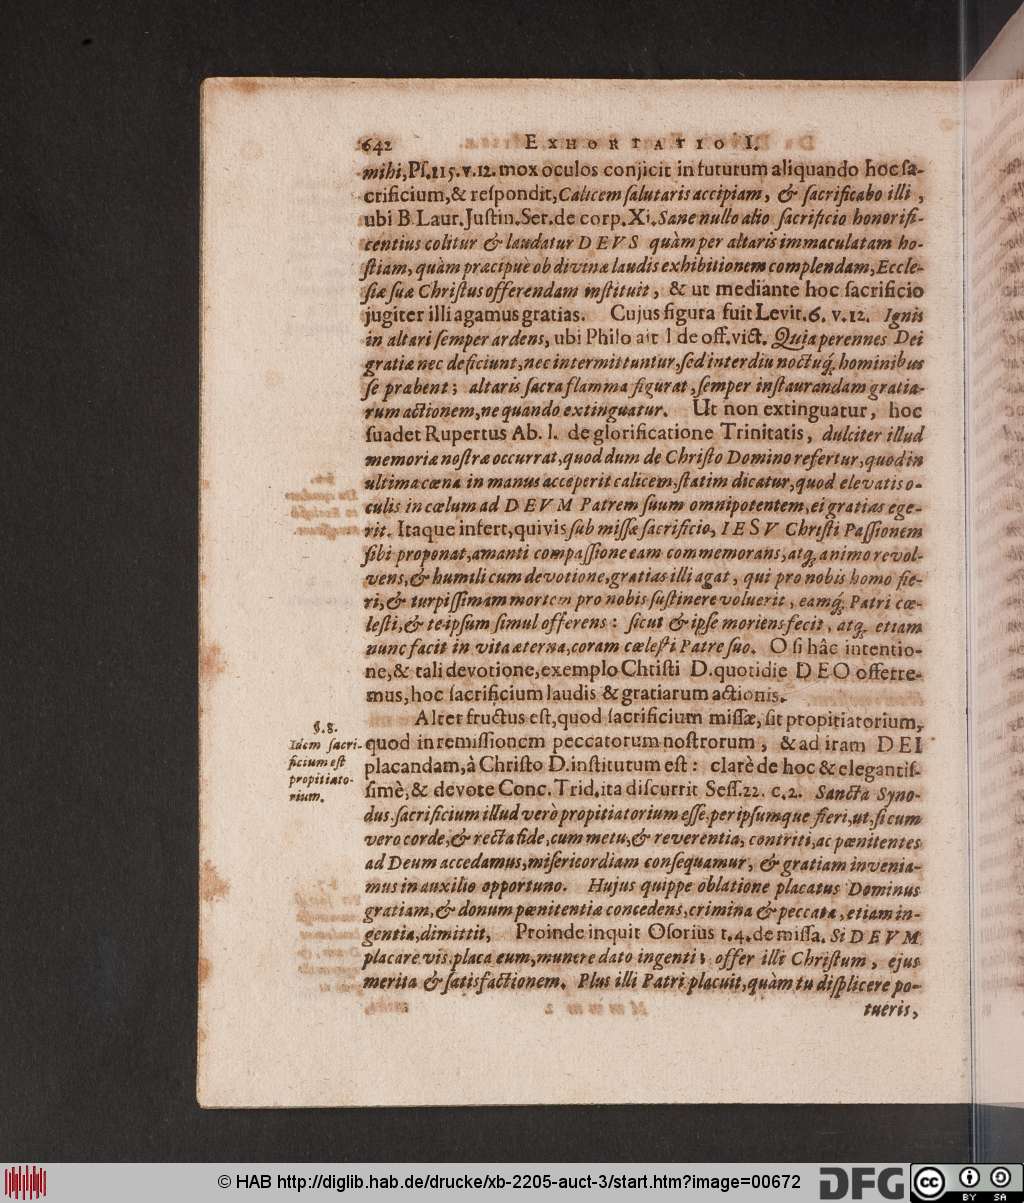 642 EXHORTATIO I.
mihi, Pſ.115.v.12. mox oculos conjicit in futurum aliquando hoc ſa-
crificium, & reſpondit, Calicem ſalutaris accipiam, & ſacrificabo illi,
ubi B. Laur. Juſtin. Ser. de corp. Xi. Sane nullo alio ſacrificio honorifi-
centius colitur & laudatur DEVS quàm per altaris immaculatam ho-
ſtiam, quàm præcipuè ob divinæ laudis exhibitionem complendam, Eccle-
ſiæ ſuæ Chriſtus offerendam inſtituit, & ut mediante hoc ſacrificio
jugiter illi agamus gratias. Cujus figura fuit Levit. 6. v. 12. Ignis
in altari ſemper ardens, ubi Philo ait l de off. vict. Quia perennes Dei
gratiæ nec deficiunt, nec intermittuntur, ſed interdiu noctuq́; hominibus
ſe præbent; altaris ſacra flamma figurat, ſemper inſtaurandam gratia-
rum actionem, ne quando extinguatur. Ut non extinguatur, hoc
ſuadet Rupertus Ab. l. de glorificatione Trinitatis, dulciter illud
memoriæ noſtræ occurrat, quod dum de Chriſto Domino refertur, quod in
ultima cœna in manus acceperit calicem, ſtatim dicatur, quod elevatis o-
culis in cœlum ad DEVM Patrem ſuum omnipotentem, ei gratias ege-
rit. Itaque infert, quivis ſub miſſæ ſacrificio, IESV Chriſti Paſſionem
ſibi proponat, amanti compaſſione eam commemorans, atq; animo revol-
vens, & humili cum devotione, gratias illi agat, qui pro nobis homo fie-
ri, & turpiſſimam mortem pro nobis ſuſtinere voluerit, eamq́; Patri cœ-
leſti, & teipſum ſimul offerens: ſicut & ipſe moriens fecit, atq; etiam
nunc facit in vita æterna, coram cœleſti Patre ſuo. O ſi hâc intentio-
ne, & tali devotione, exemplo Chriſti D. quotidie DEO offerre-
mus, hoc ſacrificium laudis & gratiarum actionis.
Alter fructus eſt, quod ſacrificium miſſæ, ſit propitiatorium,
§. 8.
Idem ſacri-
ficium eſt
propitiato-
rium.
quod in remiſſionem peccatorum noſtrorum, & ad iram DEI
placandam, à Chriſto D. inſtitutum eſt: clarè de hoc & elegantiſ-
ſimè, & devote Conc. Trid. ita diſcurrit Seſſ. 22. c. 2. Sancta Syno-
dus, ſacrificium illud verò propitiatorium eſſe, per ipſumque fieri, ut, ſi cum
vero corde, & recta fide, cum metu, & reverentia, contriti, ac pœnitentes
ad Deum accedamus, miſericordiam conſequamur, & gratiam invenia-
mus in auxilio opportuno. Hujus quippe oblatione placatus Dominus
gratiam, & donum pœnitentiæ concedens, crimina & peccata, etiam in-
gentia, dimittit, Proinde inquit Oſorius t. 4. de miſſa. Si DEVM
placare vis, placa eum, munere dato ingenti; offer illi Chriſtum, ejus
merita & ſatisfactionem. Plus illi Patri placuit, quàm tu diſplicere po-
tueris,
© HAB http://diglib.hab.de/drucke/xb-2205-auct-3/start.htm?image=00672
DFG
cc
BY SA